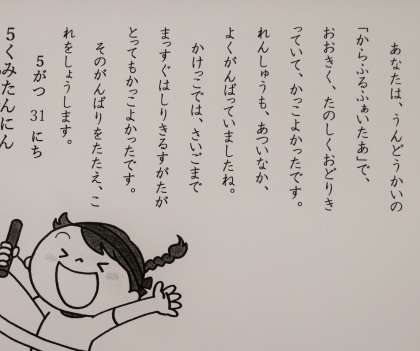 あなたは、うんどうかいの
「からふるふぁいたあ」で、
おおきく、たのしくおどりき
っていて、かっこよかったです。
れんしゅうも、あついなか、
よくがんばっていましたね。
かけっこでは、さいごまで
まっすぐはしりきるすがたが
とってもかっこよかったです。
そのがんばりをたたえ、こ
れをしょうします。
5がつ 31にち
5くみたんにん